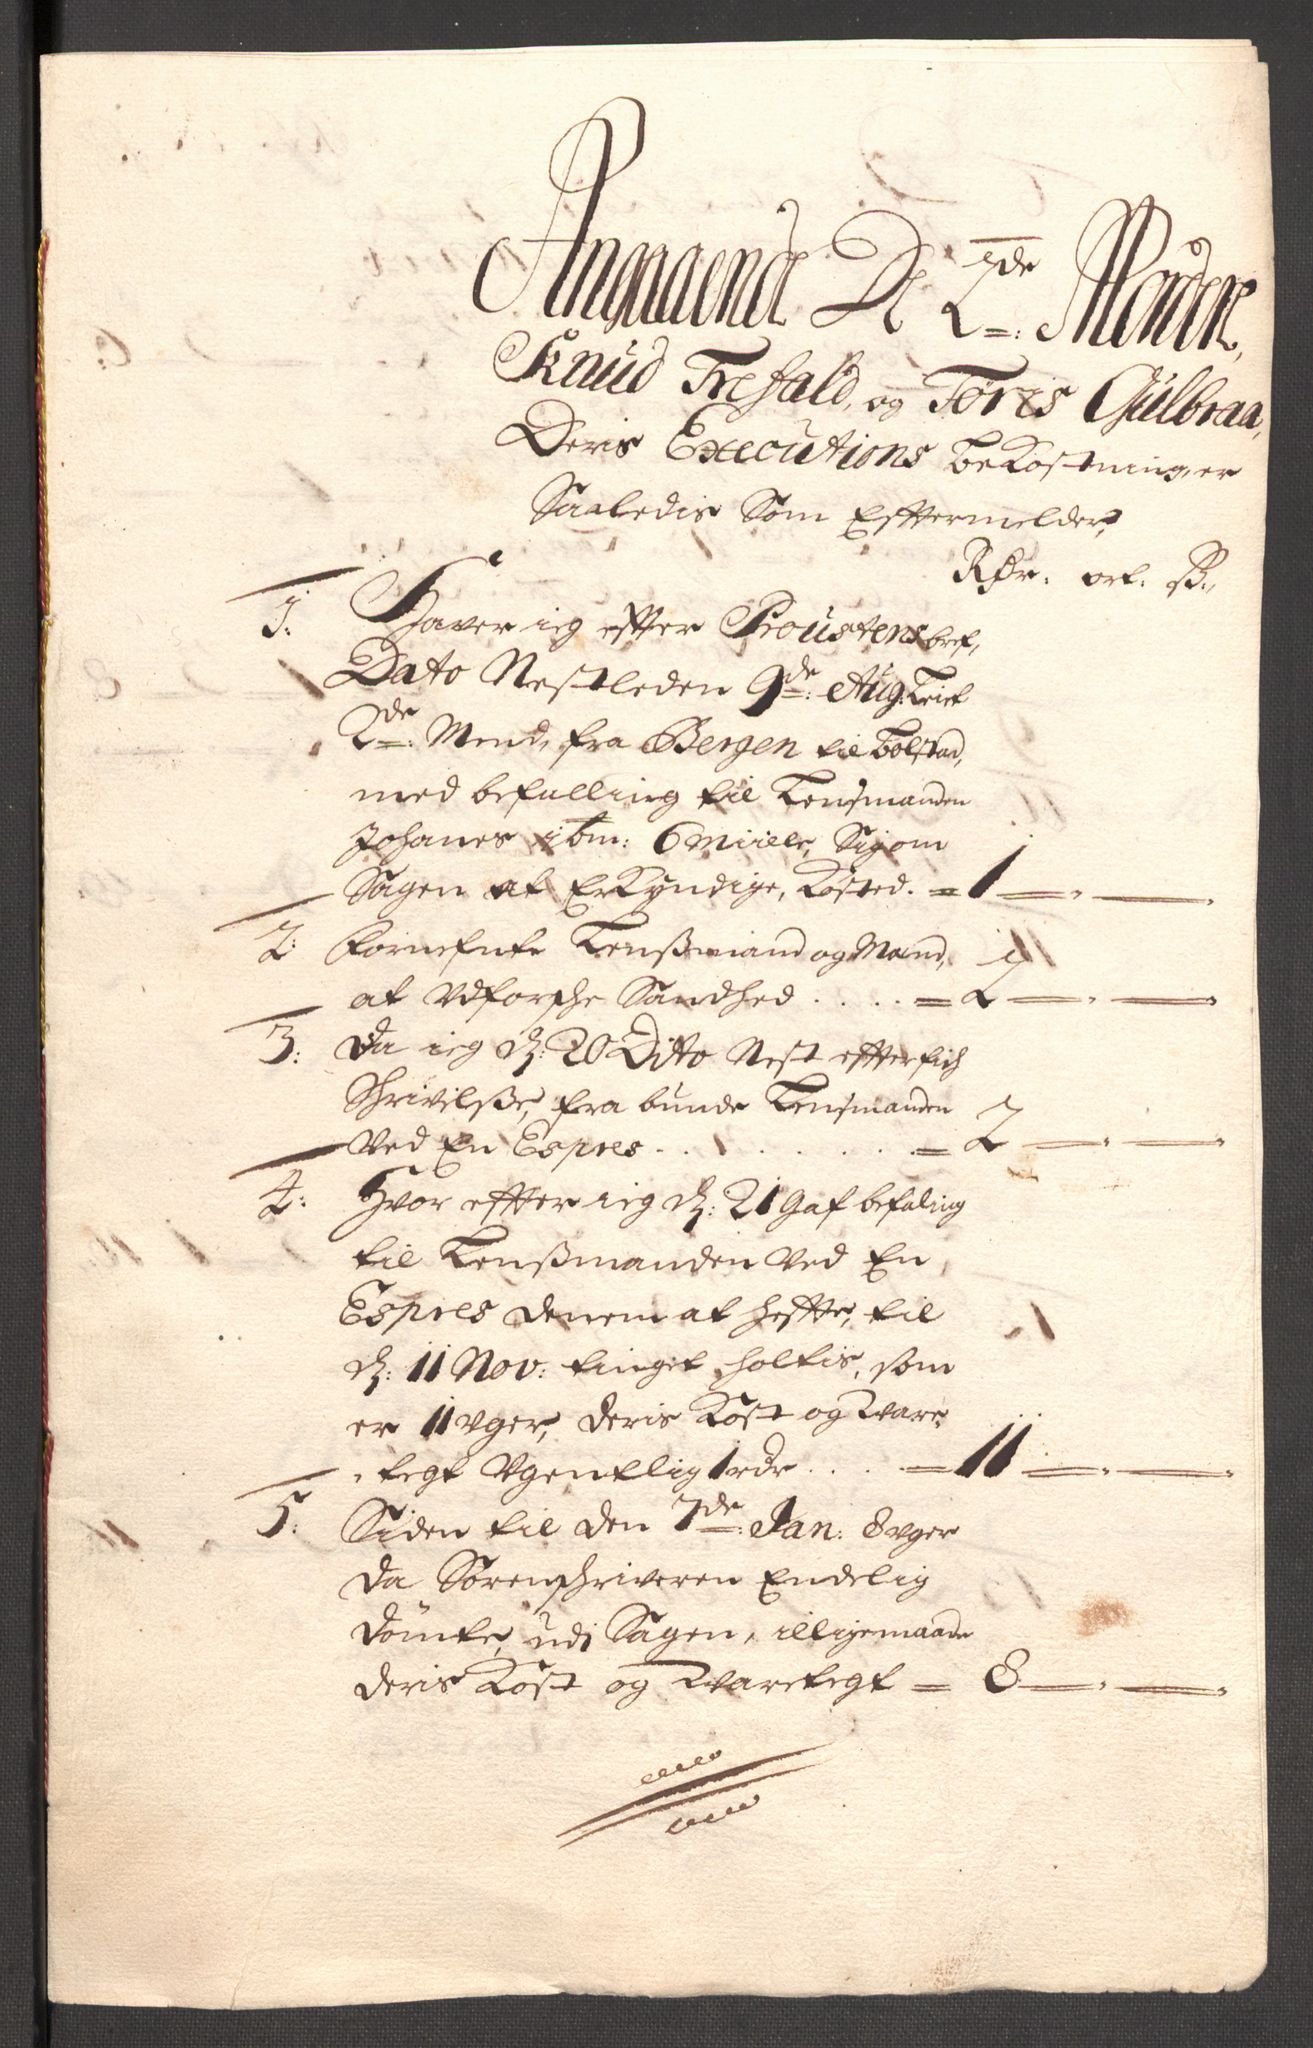 Angaaende De 2de: Mordere,
Knud Trefald, og Toris Gulbraa,
Deris Executions bekostninger
Saaledis Som Efftermelder,
Rdr. ort. ß.
1: Haver ieg effter Proustens bref,
Dato Nestleden 9de: Aug: leiet
2de: Mend, fra Bergen til Bolstad,
med befalling til Lensmanden
Johanes ibm: 6 Miile, Sig om
Sagen at Erkyndige, kosted. = 1
2: bornefnte Lenßmand og Mand,
at Udforsche Sandhed .... = 2
3: Da ieg d: 20 Dito Nest effter fich
Schrivelße, fra bemte Lensmanden
Ved En Expres ....... = 2
4: Hvor effter ieg d: 21 gaf befaling
til Lenßmanden Ved En
Expres dennem at heffte, til
d: 11 Nov: tinget holtis, som
er 11 Uger, deris Kost og Vare-
tegt Ugentlig 1 rdr .... = 11
5: Siden til den 7de: Jan: 8 uger
da Sorenschriveren Endelig
dömte, udi Sagen, illigemaade
deris Kost og Varetegt = 8